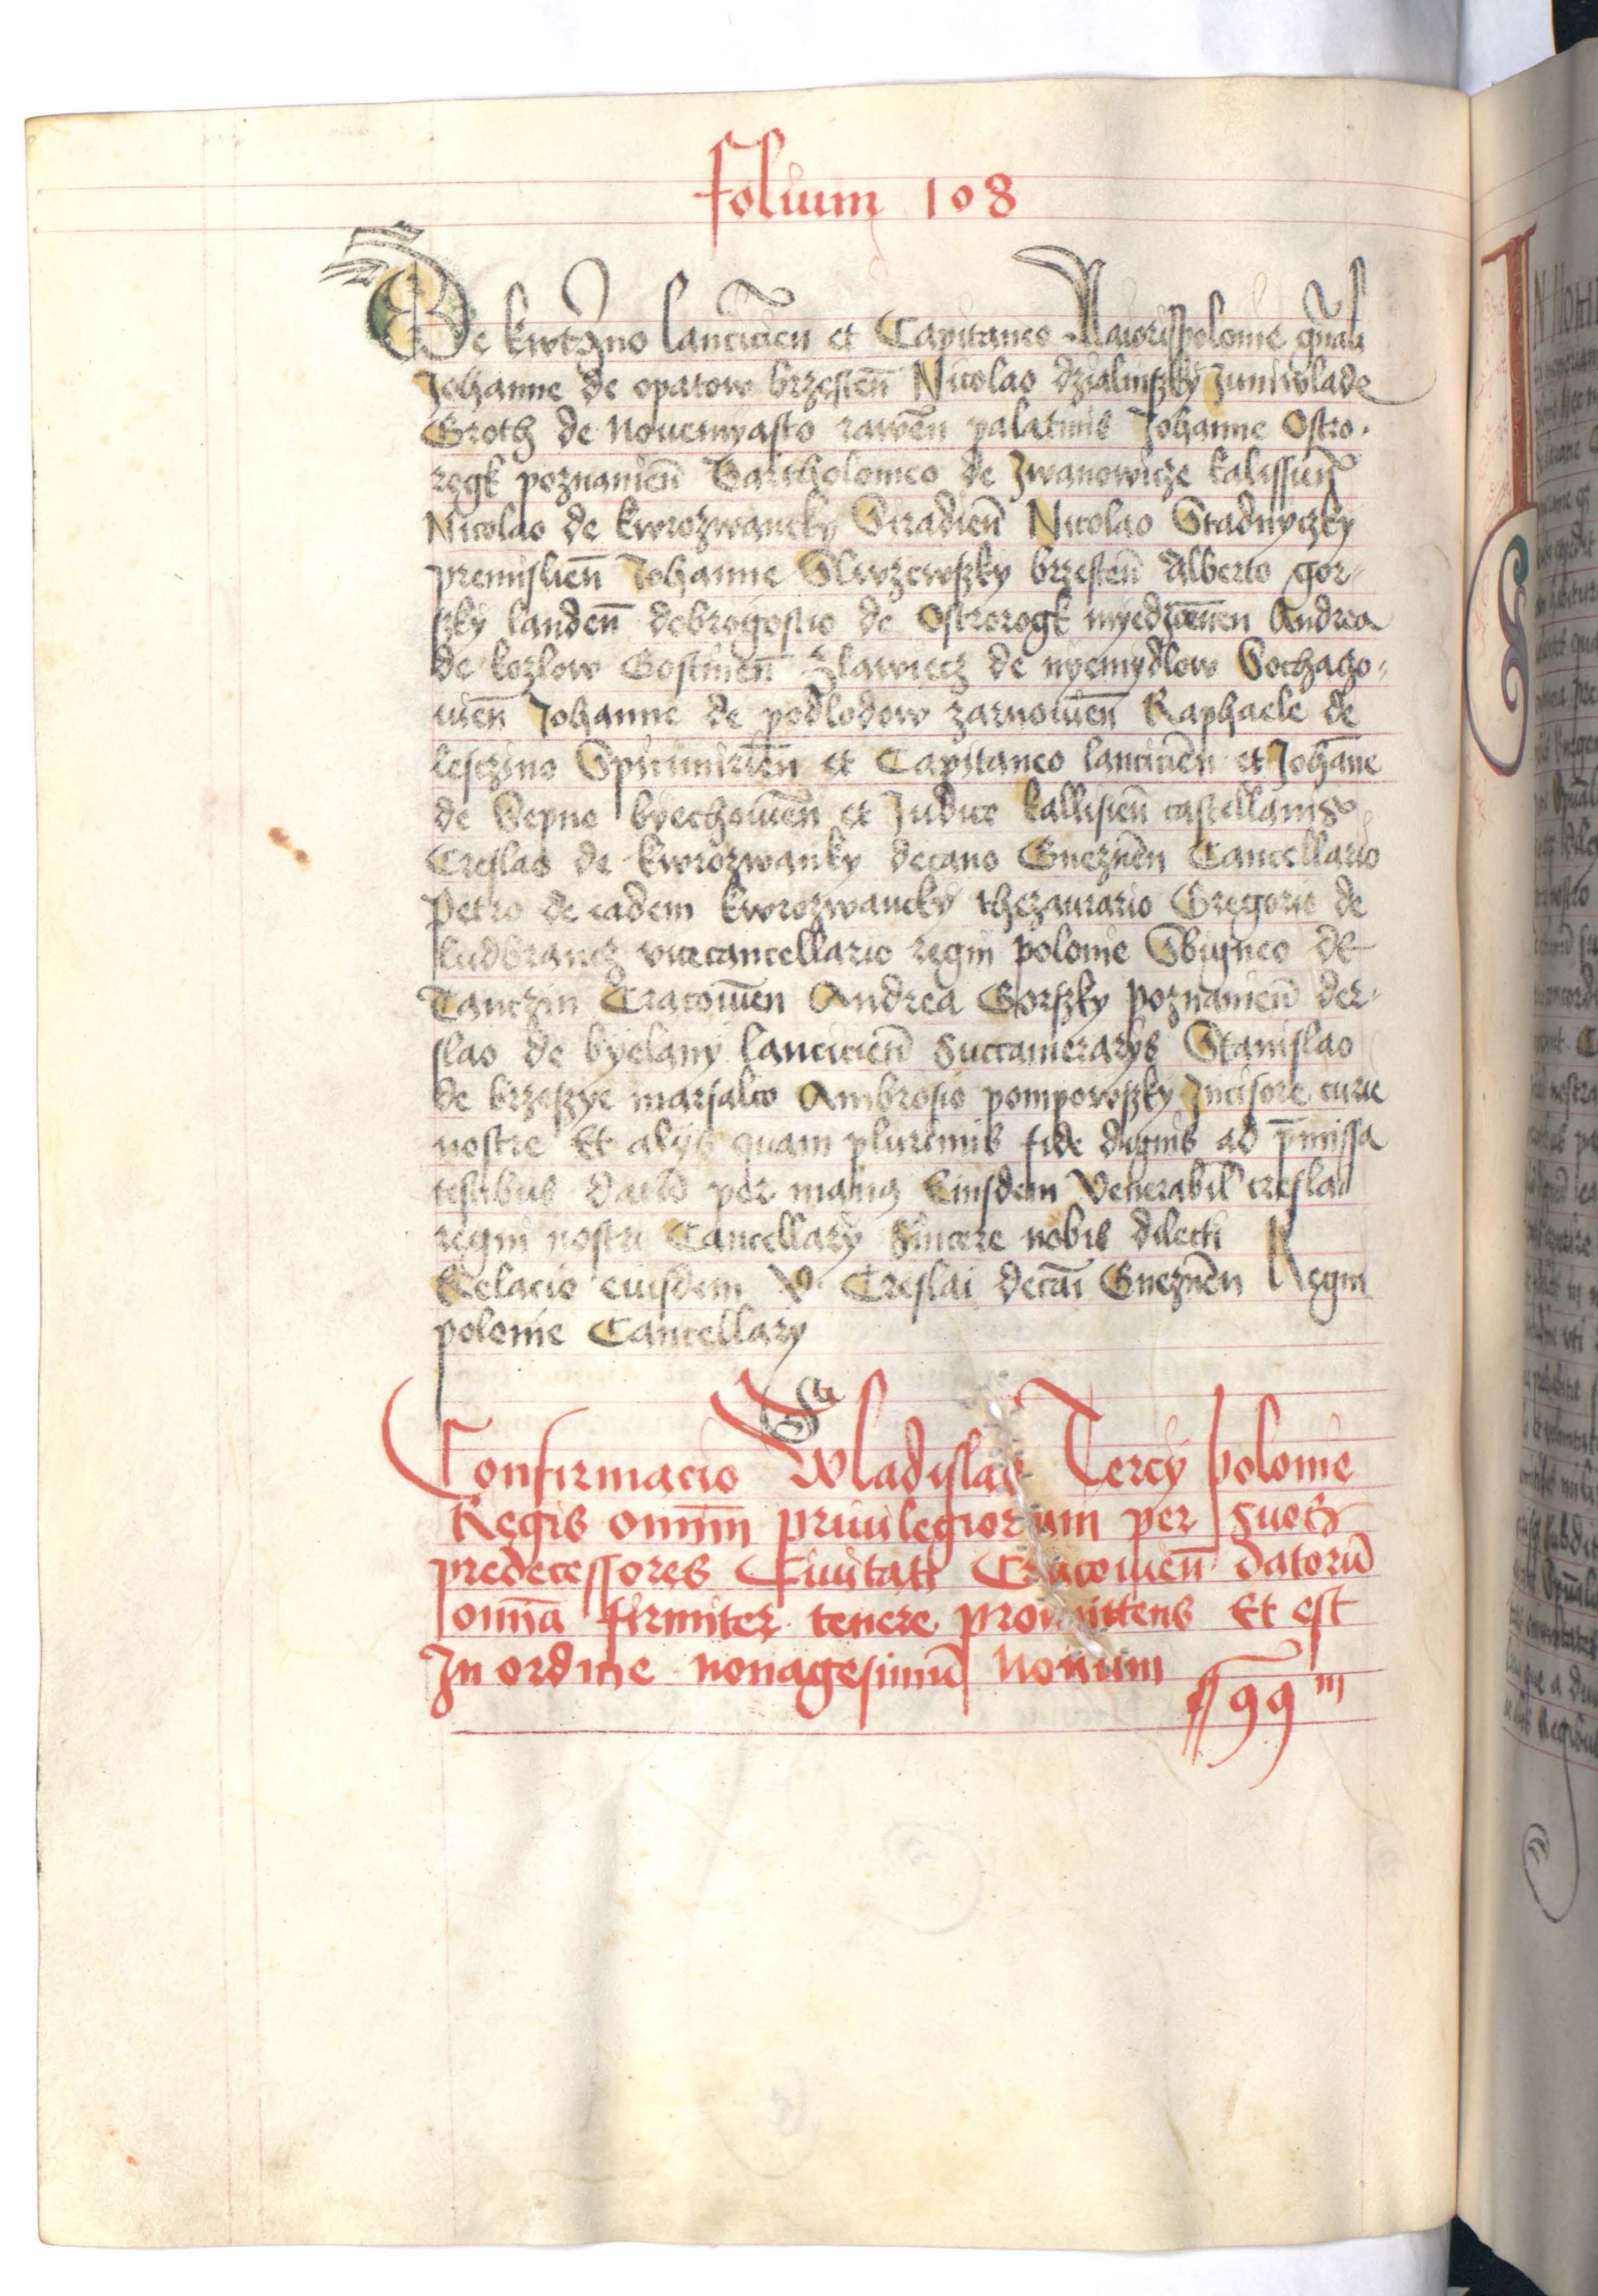 folium 108
De kwtzno lancicien̄ et Capitaneo Maiorispolonie gn̄ali
Johanne de opatow brzesten̄ Nicolao dzialinszky Juniwlade
Groth de Novemyasto rawen̄ palatinis Johanne Ostro-
regk poznanien̄ Bartholomeo de Jwanowicze kalissien̄
Nicolao de kwrozwancky Siradien̄ Nicolao Stadnyczky
premislien̄ Johanne Slwzewszky brzesten̄ Alberto gor-
szky landen̄ dobrogostio de Ostrorogk myedzircen̄ Andrea
de kozlow Gostinen̄ Slawiecz de nyemydlow Sochaczo-
uien̄ Johanne de podlodow zarnouien̄ Raphaele de
lesczino Spicimirien̄ et Capitaneo lancicien̄ et Johan̄e
de Sepno byechouien̄ et Judice kallisien̄ castellanis
Creslao de kwrozwanky decano Gneznen̄ Cancellario
Petro de eadem kwrozwancky thezaurario Gregorio de
ludbrancz vicecancellario regni polonie Sbigneo de
Tanczin Cracouien̄ Andrea Gorszky poznanien̄ der-
slao de byelany lancicien̄ Succamerarys Stanislao
de brzeszye marsalco Ambrosio pompowszky Incisore curie
nostre Et alys quam plurimis fide dignis ad p̄missa
testibus datu̅ per manus Eiusdem Venerabil creslai
regni nostri Cancellary Sincere nobis dilecti
Relacio eiusdem V. Creslai decai̅ Gneznen̄ Regni
polonie Cancellary
Confirmacio Wladislai Tercy polonie
Regis omni̅m priuilegiorum per suos
predecessores Ciuitati Cracouien̄ datoru̅
omn̄ia firmiter tenere promittens Et est
In ordine nonagesimu̅ Nonum
99 m